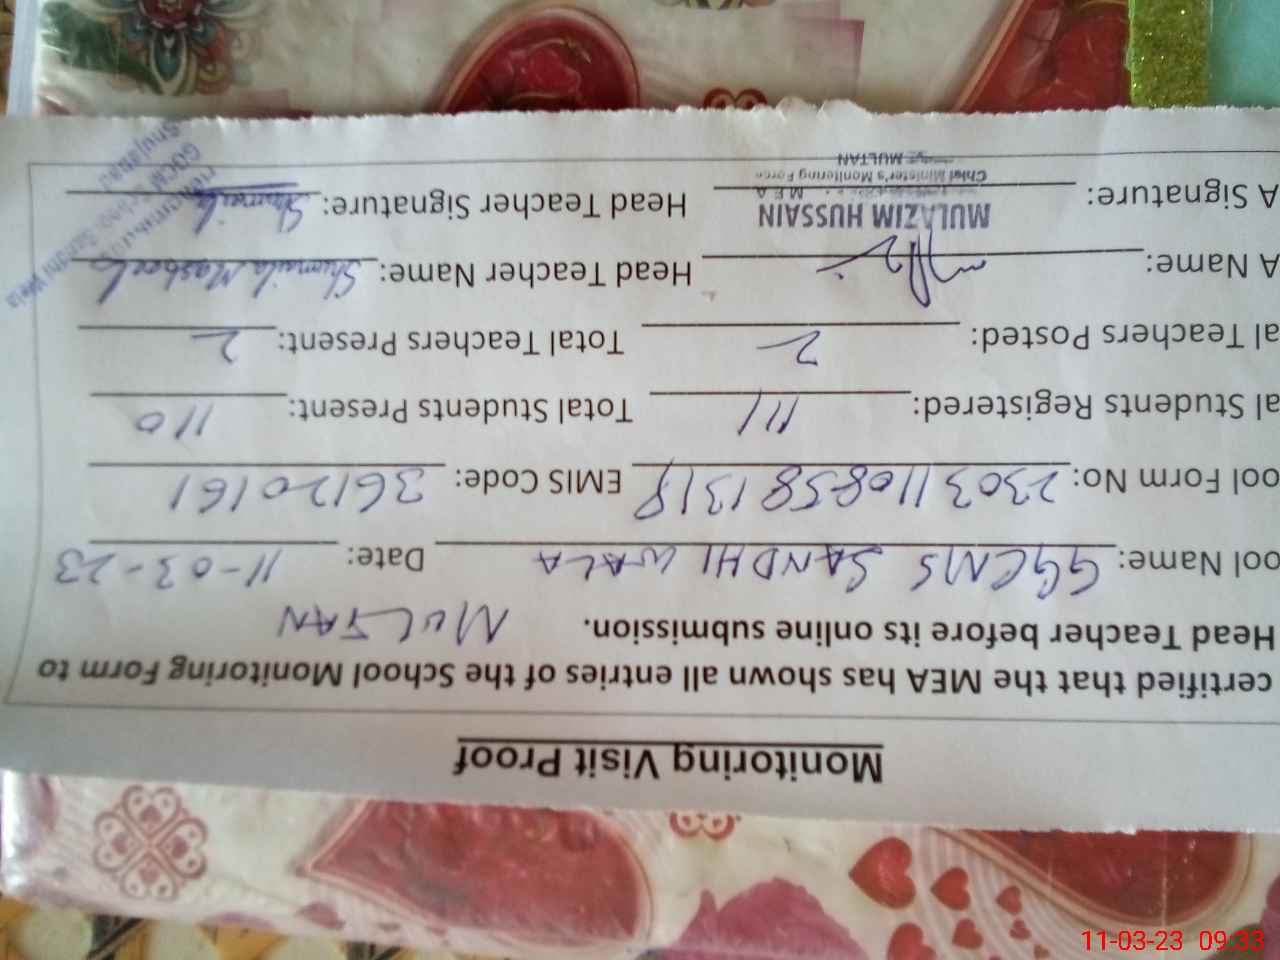 Monitoring Visit Proof
certified that the MEA has shown all entries of the School Monitoring Form to
Head Teacher before its online submission. MULTAN
ool Name: GGCMS SANDHI WALA Date: 11-03-23
ool Form No: 2303110858131 EMIS Code: 36120161
al Students Registered: 111 Total Students Present: 110
al Teachers Posted: 2 Total Teachers Present: 2
A Name: Head Teacher Name: Shumaila
A Signature: Head Teacher Signature: Shumaila
MULAZIM HUSSAIN
MEA
Chief Minister's Monitoring Force
MULTAN
Shujabad
11-03-23 09:33